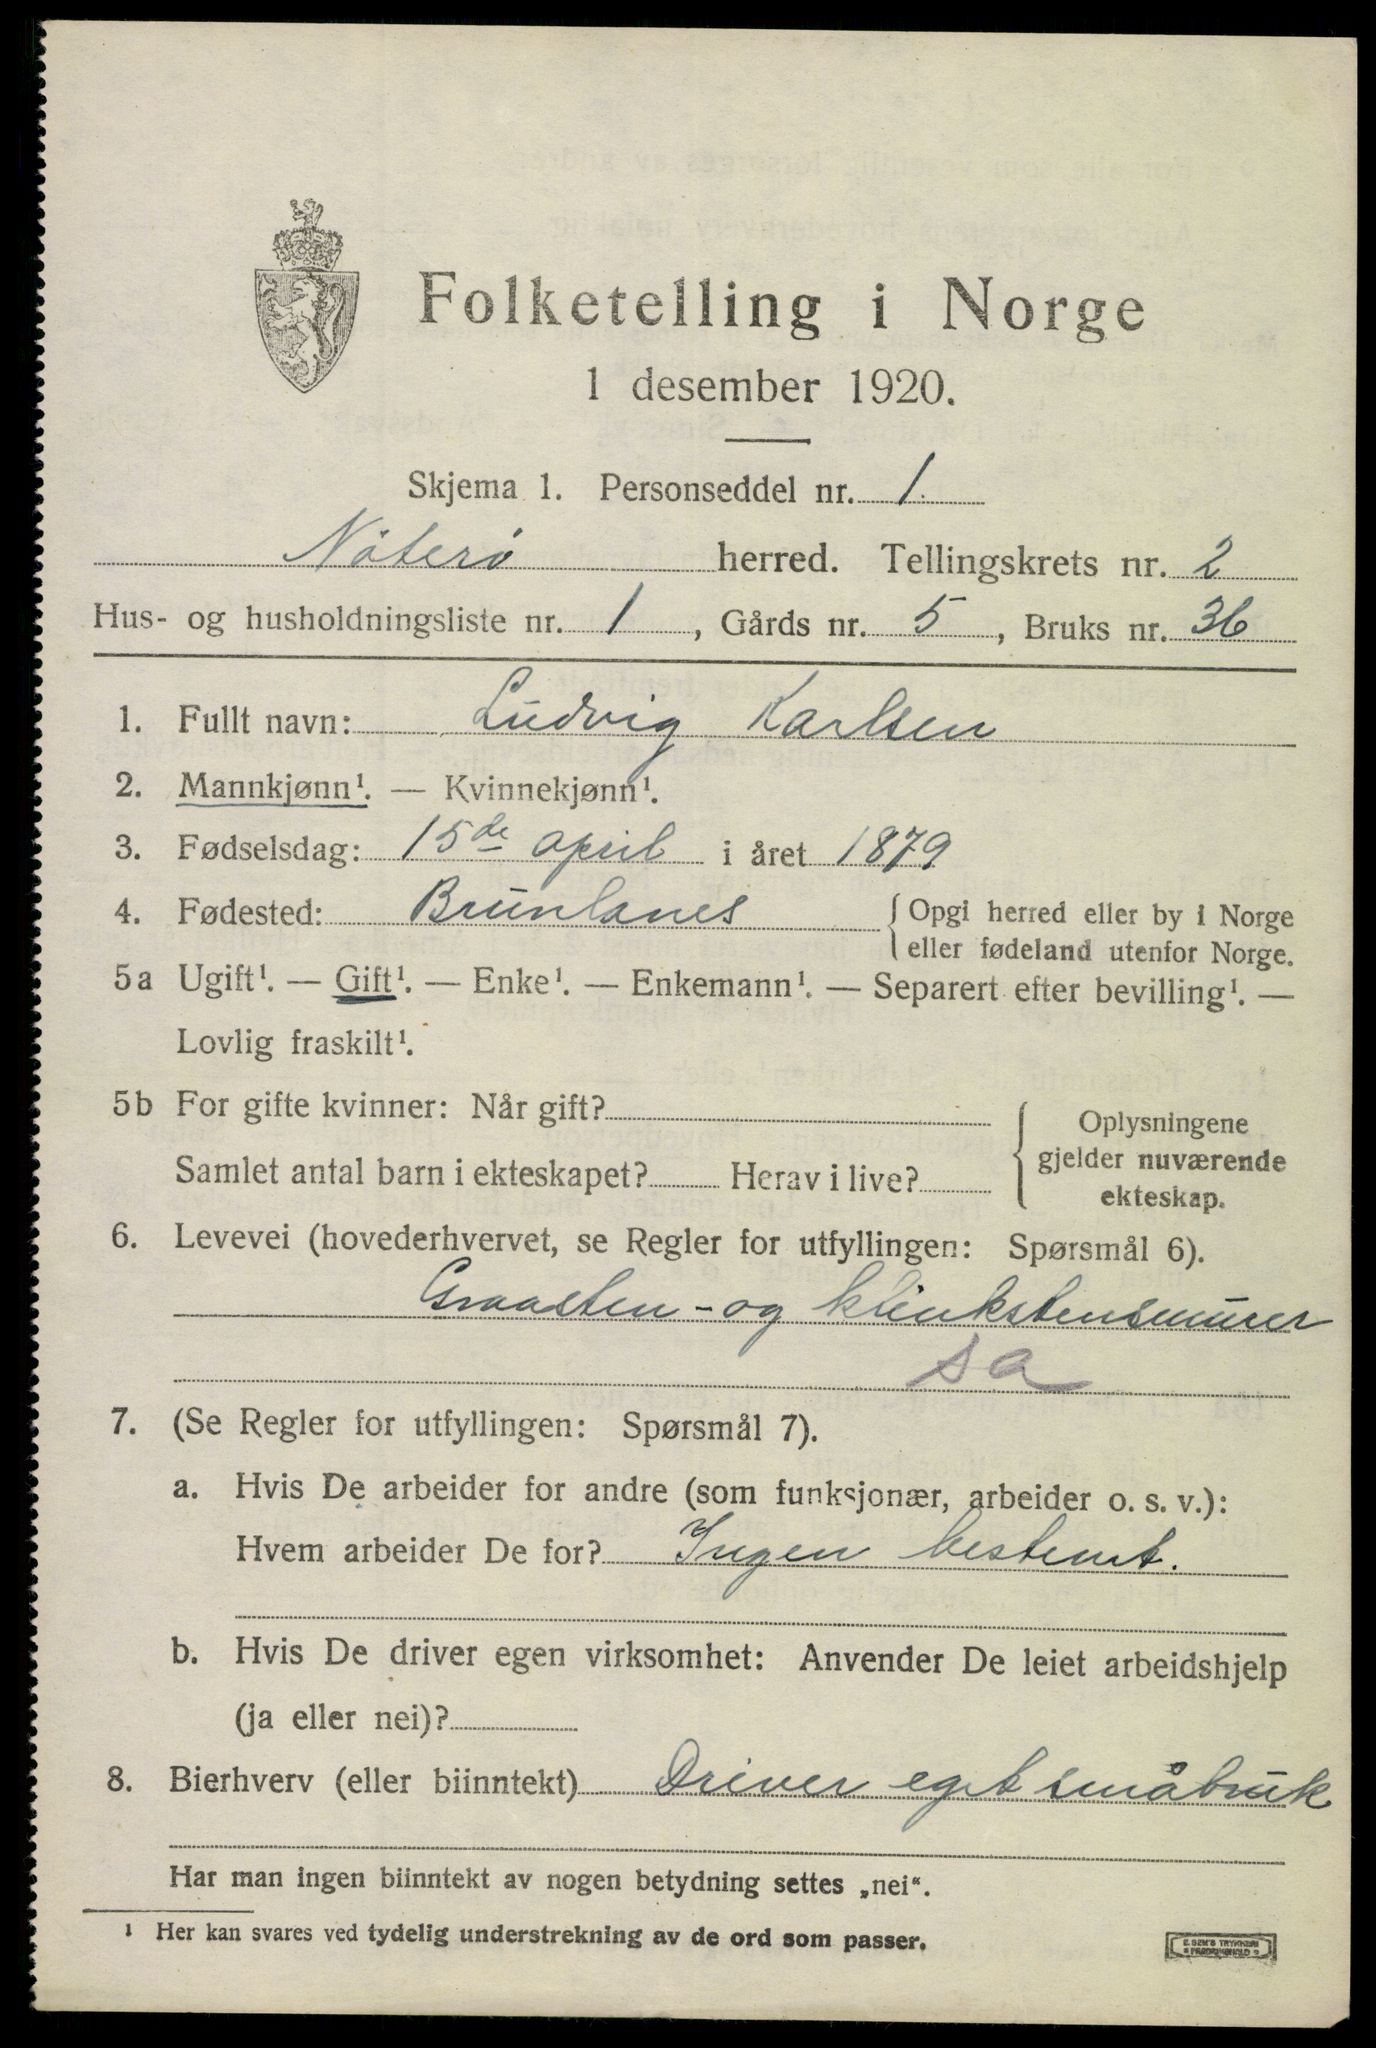 Folketelling i Norge
1 desember 1920.
Skjema 1. Personseddel nr. 1.
Nöterö herred. Tellingskrets nr. 2
Hus- og husholdningsliste nr. 1, Gårds nr. 5, Bruks nr. 36
1. Fullt navn: Ludvig Karlsen
2. Mannkjønn¹. — Kvinnekjønn¹.
3. Fødselsdag: 15de april i året 1879
4. Fødested: Brunlanes { Opgi herred eller by i Norge
eller fødeland utenfor Norge.
5a Ugift¹. — Gift¹. — Enke¹. — Enkemann¹. — Separert efter bevilling¹. —
Lovlig fraskilt¹.
5b For gifte kvinner: Når gift?
Samlet antal barn i ekteskapet? Herav i live?
{ Oplysningene
gjelder nuværende
ekteskap.
6. Levevei (hovederhvervet, se Regler for utfyllingen: Spørsmål 6).
Graasten- og klinkstensmurer
sa
7. (Se Regler for utfyllingen: Spørsmål 7).
a. Hvis De arbeider for andre (som funksjonær, arbeider o. s. v.):
Hvem arbeider De for? Ingen bestemt.
b. Hvis De driver egen virksomhet: Anvender De leiet arbeidshjelp
(ja eller nei)?
8. Bierhverv (eller biinntekt) Driver eget småbruk
Har man ingen biinntekt av nogen betydning settes „nei".
¹ Her kan svares ved tydelig understrekning av de ord som passer.
E. SEM'S TRYKKERI
FREDRIKSHALD